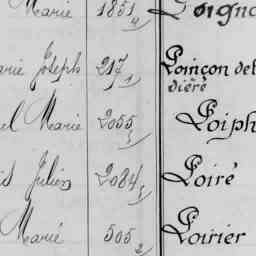 Marie 1851/4 Poigno
arie Joseph 217/1 Poinçon de l
dière
el Marie 2055/3 Poiph
is Julien 2084/3 Poiré
Marie 505/2 Poirier